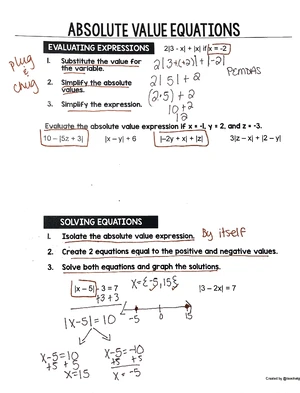 ABSOLUTE VALUE EQUATIONS
EVALUATING EXPRESSIONS
2|3 - x| + |x| if x = -2
plug & chug
1. Substitute the value for the variable.
2|3+(+2)|+|-2|
PEMDAS
2. Simplify the absolute values.
2|5|+2
(2·5)+2
3. Simplify the expression.
10+2
12
Evaluate the absolute value expression if x = -1, y = 2, and z = -3.
10 – |5z + 3|
|x – y| + 6
|–2y + x| + |z|
3|z – x| + |2 – y|
SOLVING EQUATIONS
1. Isolate the absolute value expression.
By itself
2. Create 2 equations equal to the positive and negative values.
3. Solve both equations and graph the solutions.
|x – 5| - 3 = 7
+3 +3
x={-5,15}
|3 – 2x| = 7
-5 0 15
|x-5| = 10
x-5=10
+5 +5
x=15
x-5=-10
+5 +5
x=-5